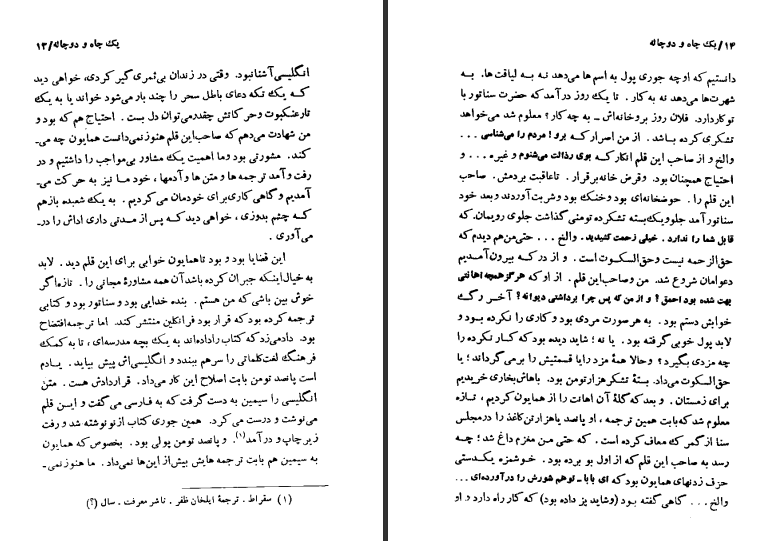 یک چاه و دو چاله/۱۳
انگلیسی آشنا نبود. وقتی در زندان بی‌ثمری گیر کردی، خواهی دید
که یک تکه دعای باطل سحر را چند بار می‌شود خواند یا به یک
تار عنکبوت و حرکاتش چقدر می‌توان دل بست. احتیاج هم که بود و
من شهادت می‌دهم که صاحب این قلم هنوز نمی‌دانست همایون چه می-
کند. مشورتی بود و ما اهمیت یک مشاور بی‌مواجب را داشتیم و در
رفت و آمد ترجمه‌ها و متن‌ها و آدمها، خود ما نیز به حرکت می-
آمدیم و گاهی کاری برای خودمان می‌کردیم. به یک شعبده بازهم
که چشم بدوزی، خواهی دید که پس از مدتی داری اداش را در-
می‌آوری.
این قضایا بود و بود تا همایون خوابی برای این قلم دید. لابد
به خیال اینکه جبران کرده باشد آن همه مشاورهٔ مجانی را. تازه اگر
خوش بین باشی که من هستم. بنده خدایی بود و سناتور بود و کتابی
ترجمه کرده بود که قرار بود فرانکلین منتشر کند. اما ترجمه افتضاح
بود. داد می‌زد که کتاب را داده‌اند به یک بچه مدرسه‌ای، تا به کمک
فرهنگ لغت کلماتی را سرهم ببندد و انگلیسی‌اش پیش بیاید. یادم
است پانصد تومن بابت اصلاح این کار می‌داد. قراردادش هست. متن
انگلیسی را سیمین به دست گرفت که به فارسی می‌گفت و این قلم
می‌نوشت و درست می‌کرد. همین جوری کتاب از نو نوشته شد و رفت
زیر چاپ و درآمد(۱). و پانصد تومن پولی بود. بخصوص که همایون
به سیمین هم بابت ترجمه‌هایش بیش از این‌ها نمی‌داد. ما هنوز نمی-
(۱) سقراط. ترجمهٔ ایلخان ظفر. ناشر معرفت. سال (؟)
۱۴/یک چاه و دو چاله
دانستیم که او چه جوری پول به اسم‌ها می‌دهد نه به لیاقت‌ها. به
شهرت‌ها می‌دهد نه به کار. تا یک روز درآمد که حضرت سناتور با
تو کار دارد. فلان روز برو خانه‌اش ـ به چه کار؟ معلوم شد می‌خواهد
تشکری کرده باشد. از من اصرار که برو! مردم را می‌شناسی ...
والخ و از صاحب این قلم انکار که بوی رذالت می‌شنوم و غیره... و
احتیاج همچنان بود. و قرض خانه برقرار. تا عاقبت بردمش. صاحب
این قلم را. حوضخانه‌ای بود و خنک بود و شربت آوردند و بعد خود
سناتور آمد جلو و یک بسته تشکرده تومنی گذاشت جلوی رویمان. که
قابل شما را ندارد. خیلی زحمت کشیدید. والخ ... حتی من هم دیدم که
حق‌الزحمه نیست و حق‌السکوت است. و از در که بیرون آمدیم
دعوامان شروع شد. من و صاحب این قلم. از او که هرگز همچه اهانتی
بهت شده بود احمق؟ و از من که پس چرا برداشتی دیوانه؟ آخر رگ
خوابش دستم بود. به هر صورت مردی بود و کاری را نکرده بود و
لابد پول خوبی گرفته بود. یا نه؛ شاید دیده بود که کار نکرده را
چه مزدی بگیرد؟ و حالا همهٔ مزد را یا قسمتیش را بر می‌گرداند؛ یا
حق‌السکوت می‌داد. بستهٔ تشکر هزار تومن بود. باهاش بخاری خریدیم
برای زمستان. و بعد که گلهٔ آن اهانت را از همایون کردیم، تازه
معلوم شد که بابت همین ترجمه، او پانصد یا هزار تن کاغذ را در مجلس
سنا از گمرک معاف کرده است. که حتی من مغزم داغ شد؛ چه
رسد به صاحب این قلم که از اول بو برده بود. خوشمزه یکدستی
حرف زدنهای همایون بود که ای بابا ـ تو هم شورش را در آورده‌ای ...
والخ ... گاهی گفته بود (و شاید پز داده بود) که کار راه دارد و او